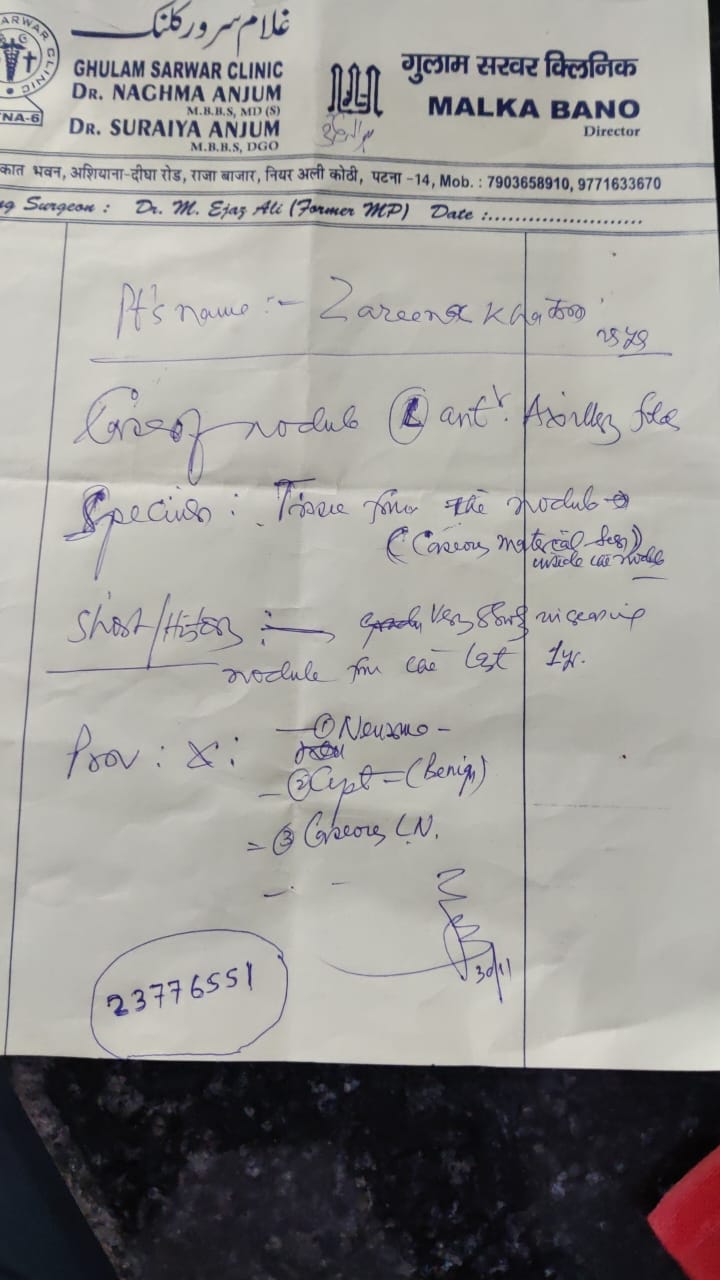 غلام سرور کلنک
SARWAR CLINIC
NA-6
GHULAM SARWAR CLINIC
DR. NAGHMA ANJUM
M.B.B.S, MD (S)
DR. SURAIYA ANJUM
M.B.B.S, DGO
गुलाम सरवर क्लिनिक
MALKA BANO
Director
कात भवन, अशियाना-दीघा रोड, राजा बाजार, नियर अली कोठी, पटना -14, Mob. : 7903658910, 9771633670
ng Surgeon : Dr. M. Ejaz Ali (Former MP) Date :.......................
Pt's name :- Zareena
Case of nodule (L) antr. Axillary fold
Specimen : Tissue from the nodule
(Caseous material seen)
inside the nodule
Short/History :- Very slowly increasing
nodule for the last 1yr.
Prov : :
① Neuro -
- ② Cyst - (Benign)
= ③ Caseous L.N.
30/11
23776551